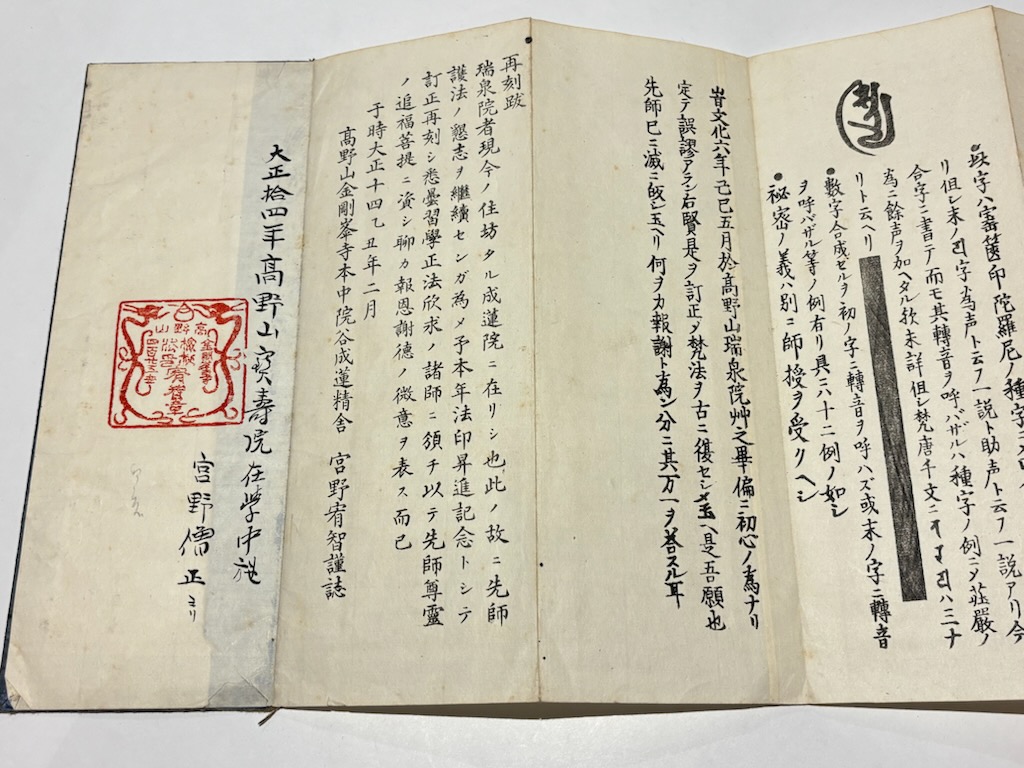 此字ハ宝篋印陀羅尼ノ種字
リ但シ末ノ字為声ト云フ一説ト助声ト云フ一説アリ今
合字ニ書テ而モ其轉音ヲ呼バザルハ種字ノ例ニメ荘厳ノ
為ニ餘声ヲ加ヘタル欤未詳但シ梵唐千文ニハ三ナ
リト云ヘリ
●數字合成セルヲ初ノ字ニ轉音ヲ呼ハズ或末ノ字ニ轉音
ヲ呼バザル等ノ例有リ具ニハ十二例ノ如シ
●祕密ノ義ハ別ニ師授ヲ受クヘシ
旹文化六年己巳五月於高野山瑞泉院艸之畢偏ニ初心ノ為ナリ
定テ誤謬アラン右賢是ヲ訂正メ梵法ヲ古ニ復セシメ玉ヘ是吾願也
先師已ニ滅ニ皈シ玉ヘリ何ヲカ報謝ト為ン分ニ其万一ヲ答スル耳
再刻跋
瑞泉院者現今ノ住坊タル成蓮院ニ在リシ也此ノ故ニ先師
護法ノ懇志ヲ繼續センガ為メ予本年法印昇進記念トシテ
訂正再刻シ悉曇習學正法欣求ノ諸師ニ頒チ以テ先師尊靈
ノ追福菩提ニ資シ聊カ報恩謝德ノ微意ヲ表ス而已
于時大正十四乙丑年二月
高野山金剛峯寺本中院谷成蓮精舎 宮野宥智謹誌
大正拾四年高野山宝壽院在學中
宮野僧正ヨリ
高野山
金剛峯寺